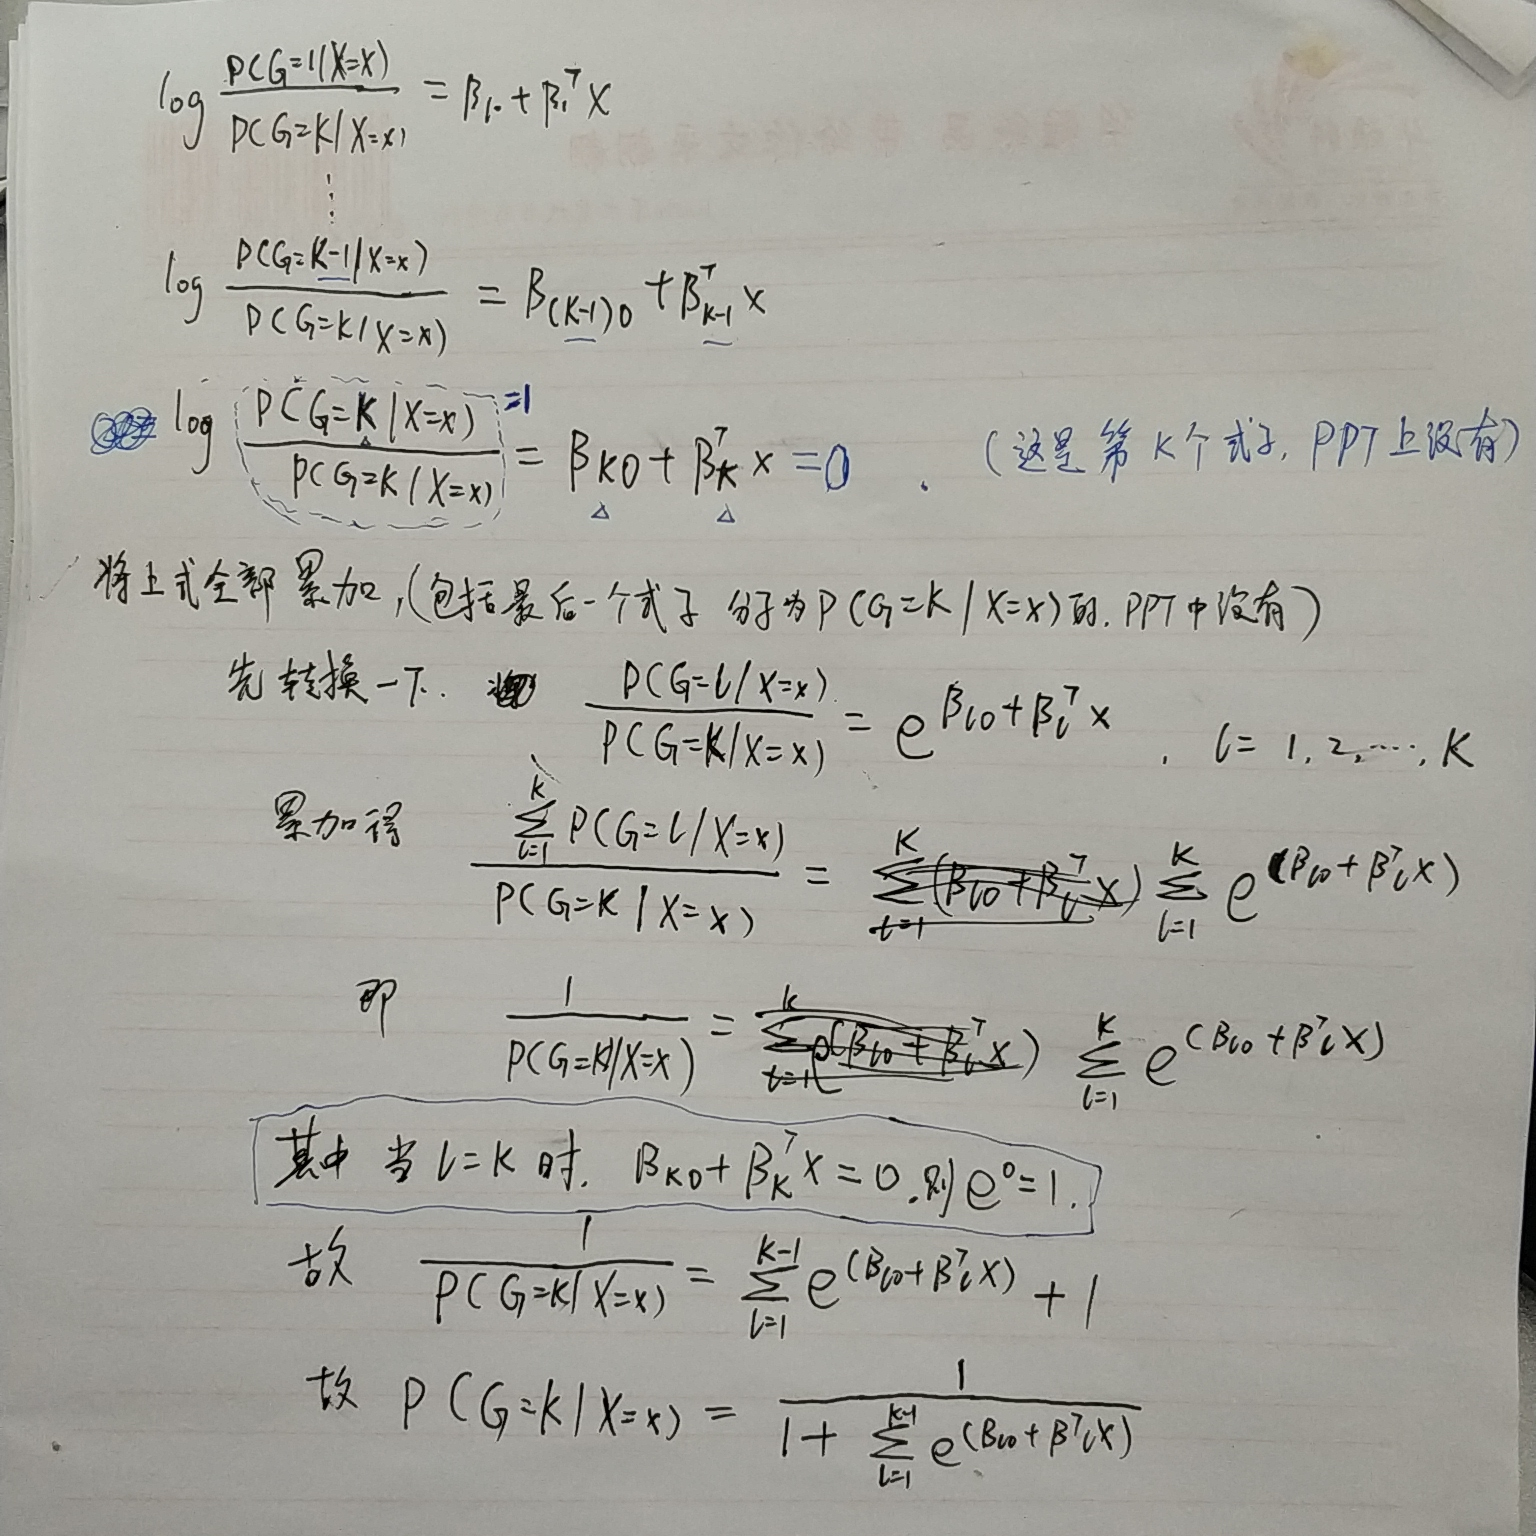 log P(G=1|X=x) / P(G=K|X=x) = β₁₀ + β₁ᵀx
⋮
log P(G=K-1|X=x) / P(G=K|X=x) = β₍K-1₎₀ + βᵀ_{K-1} x
log P(G=K|X=x) / P(G=K|X=x) =1 = β_{K0} + β_Kᵀ x = 0 . (这是第K个式子, PPT上没有)
将上式全部累加,(包括最后一个式子 分子为P(G=K|X=x)的, PPT中没有)
先转换一下. P(G=l|X=x) / P(G=K|X=x) = e^{β_{l0} + β_lᵀ x} , l = 1, 2, ⋯, K
累加得 Σ_{l=1}^{K} P(G=l|X=x) / P(G=K|X=x) = Σ_{l=1}^{K} e^{(β_{l0} + β_lᵀ x)}
即 1 / P(G=K|X=x) = Σ_{l=1}^{K} e^{(β_{l0} + β_lᵀ x)}
其中 当 l=K 时, β_{K0} + β_Kᵀ x = 0, 则 e⁰=1.
故 1 / P(G=K|X=x) = Σ_{l=1}^{K-1} e^{(β_{l0} + β_lᵀ x)} + 1
故 P(G=K|X=x) = 1 / (1 + Σ_{l=1}^{K-1} e^{(β_{l0} + β_lᵀ x)})